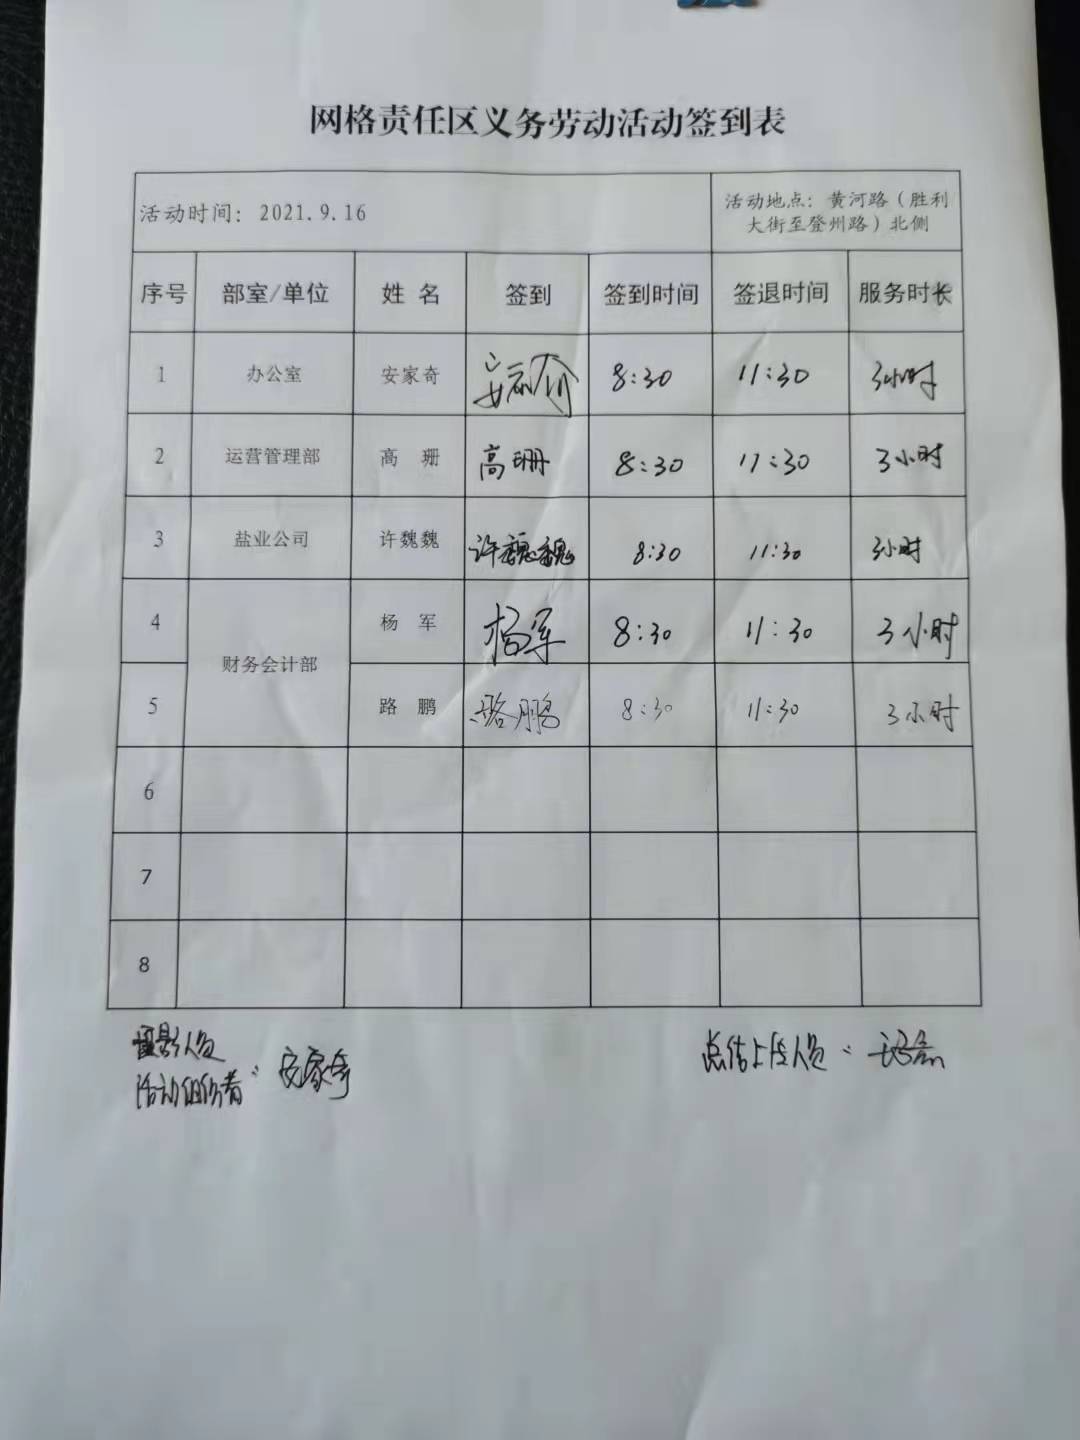 网格责任区义务劳动活动签到表
活动时间: 2021.9.16
活动地点: 黄河路（胜利
大街至登州路）北侧
序号 部室/单位 姓 名 签到 签到时间 签退时间 服务时长
1 办公室 安家奇 安家奇 8:30 11:30 3小时
2 运营管理部 高 珊 高珊 8:30 11:30 3小时
3 盐业公司 许魏魏 许魏魏 8:30 11:30 3小时
4 财务会计部 杨 军 杨军 8:30 11:30 3小时
5 路 鹏 路鹏 8:30 11:30 3小时
6
7
8
摄影人员
活动组织者: 安家奇
总结上传人员: